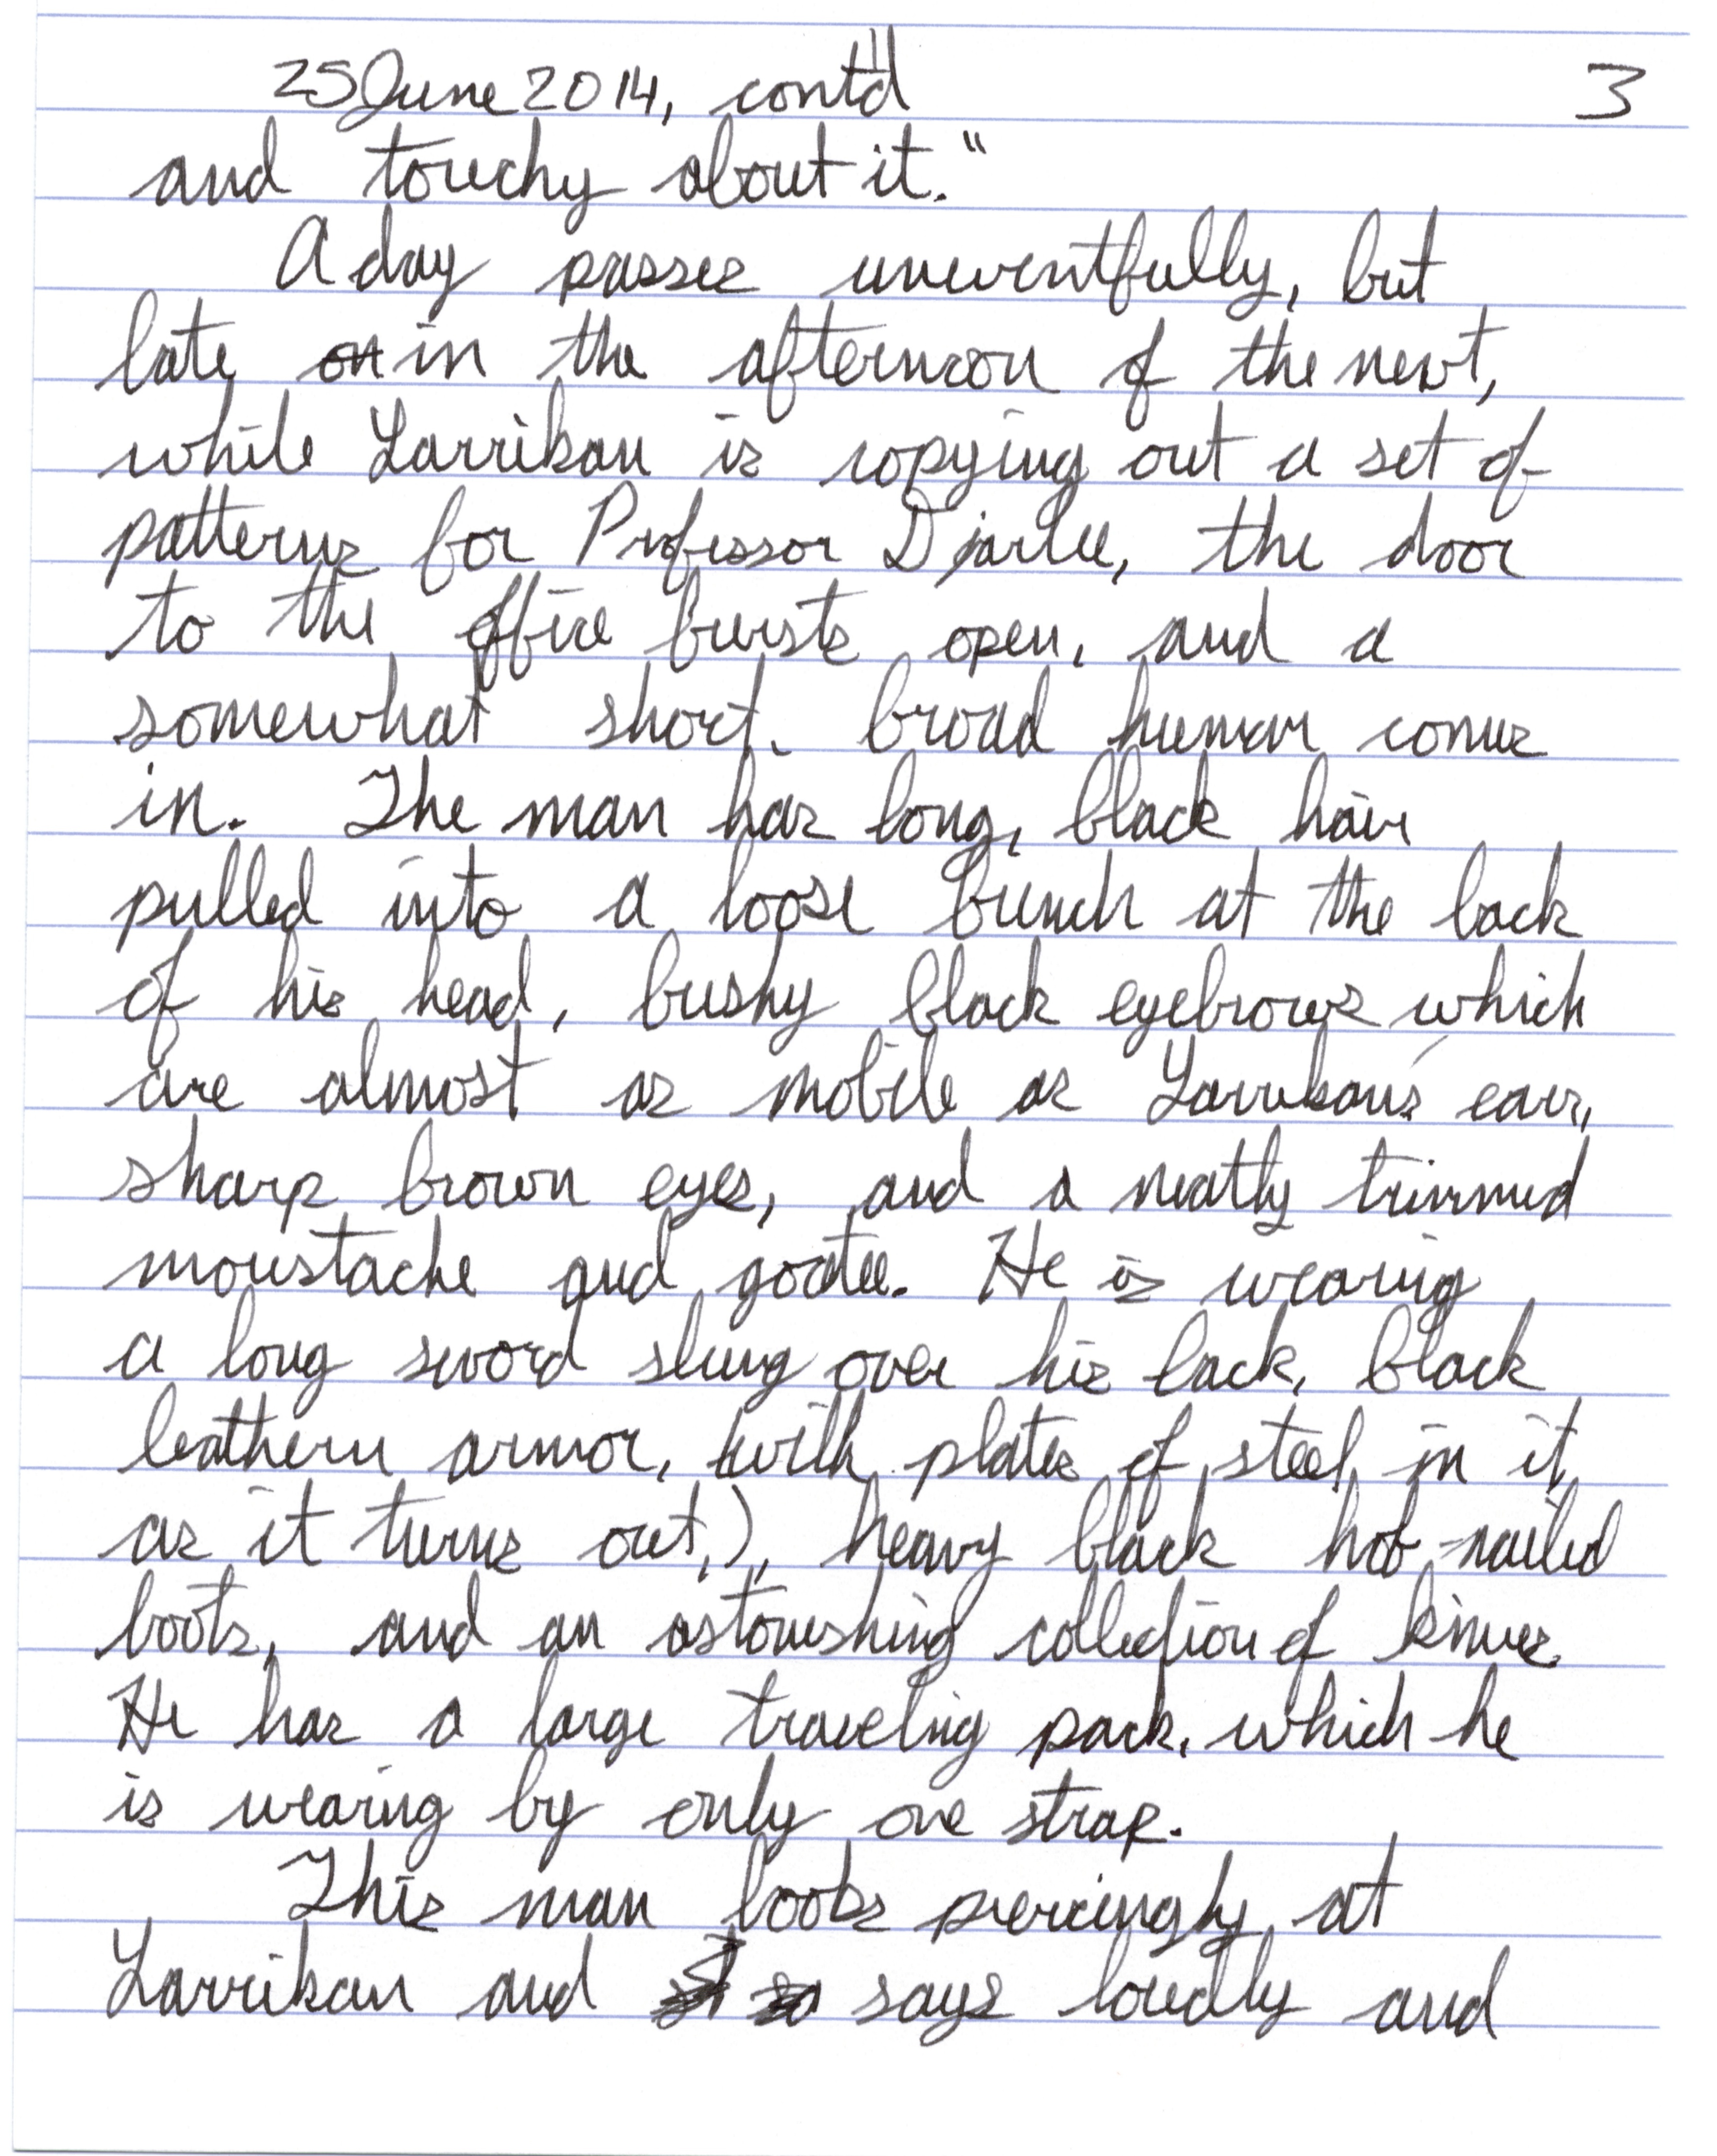 25 June 2014, cont'd 3
and touchy about it."
A day passes uneventfully, but
late on in the afternoon of the next,
while Larrikan is copying out a set of
patterns for Professor Djarlee, the door
to the office bursts open, and a
somewhat short, broad human comes
in. The man has long, black hair
pulled into a loose bunch at the back
of his head, bushy black eyebrows which
are almost as mobile as Larrikan's ears,
sharp brown eyes, and a neatly trimmed
moustache and goatee. He is wearing
a long sword slung over his back, black
leathern armor, (with plates of steel in it,
as it turns out,), heavy black hob-nailed
boots, and an astonishing collection of knives.
He has a large traveling pack, which he
is wearing by only one strap.
This man looks piercingly at
Larrikan and says loudly and